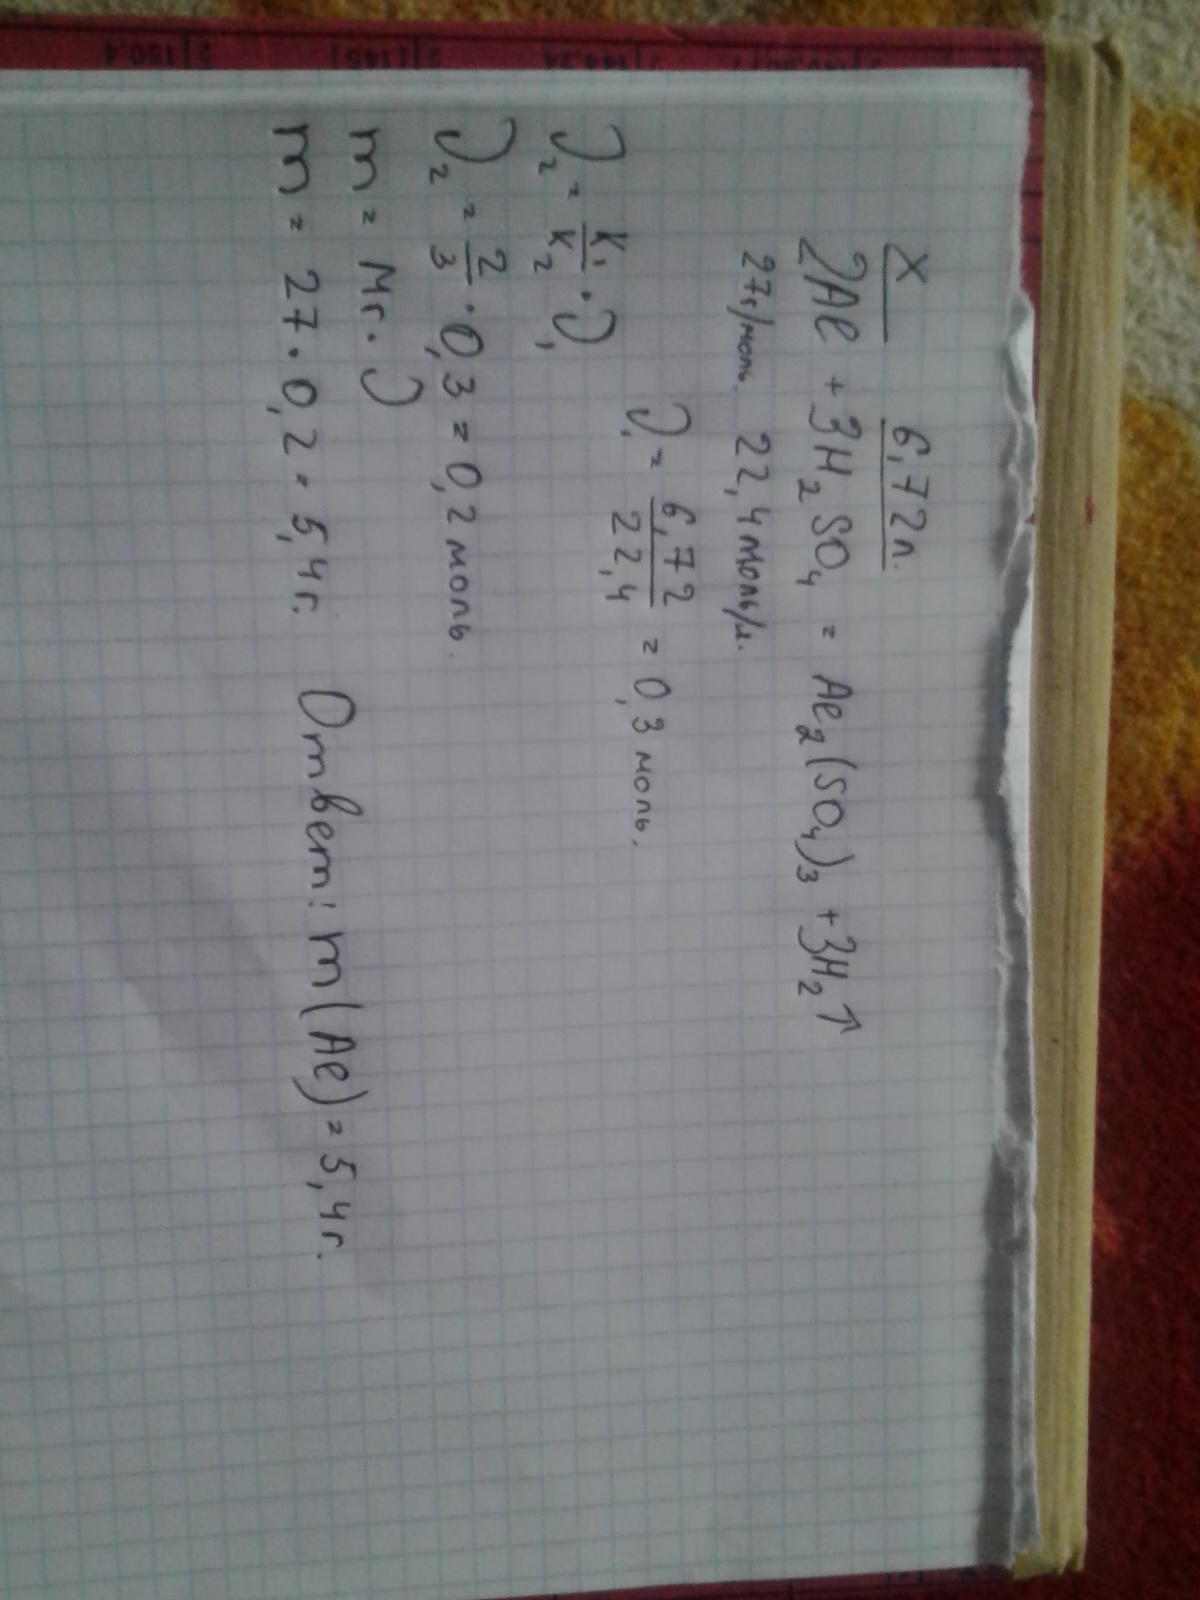 x 6,72л.
2Al + 3H₂SO₄ = Al₂(SO₄)₃ + 3H₂↑
27г/моль. 22,4моль/л.
ν₁ = 6,72/22,4 = 0,3 моль.
ν₂ = k₁/k₂ · ν₁
ν₂ = 2/3 · 0,3 = 0,2 моль.
m = Mr · ν
m = 27 · 0,2 = 5,4г. Ответ: m(Al) = 5,4г.